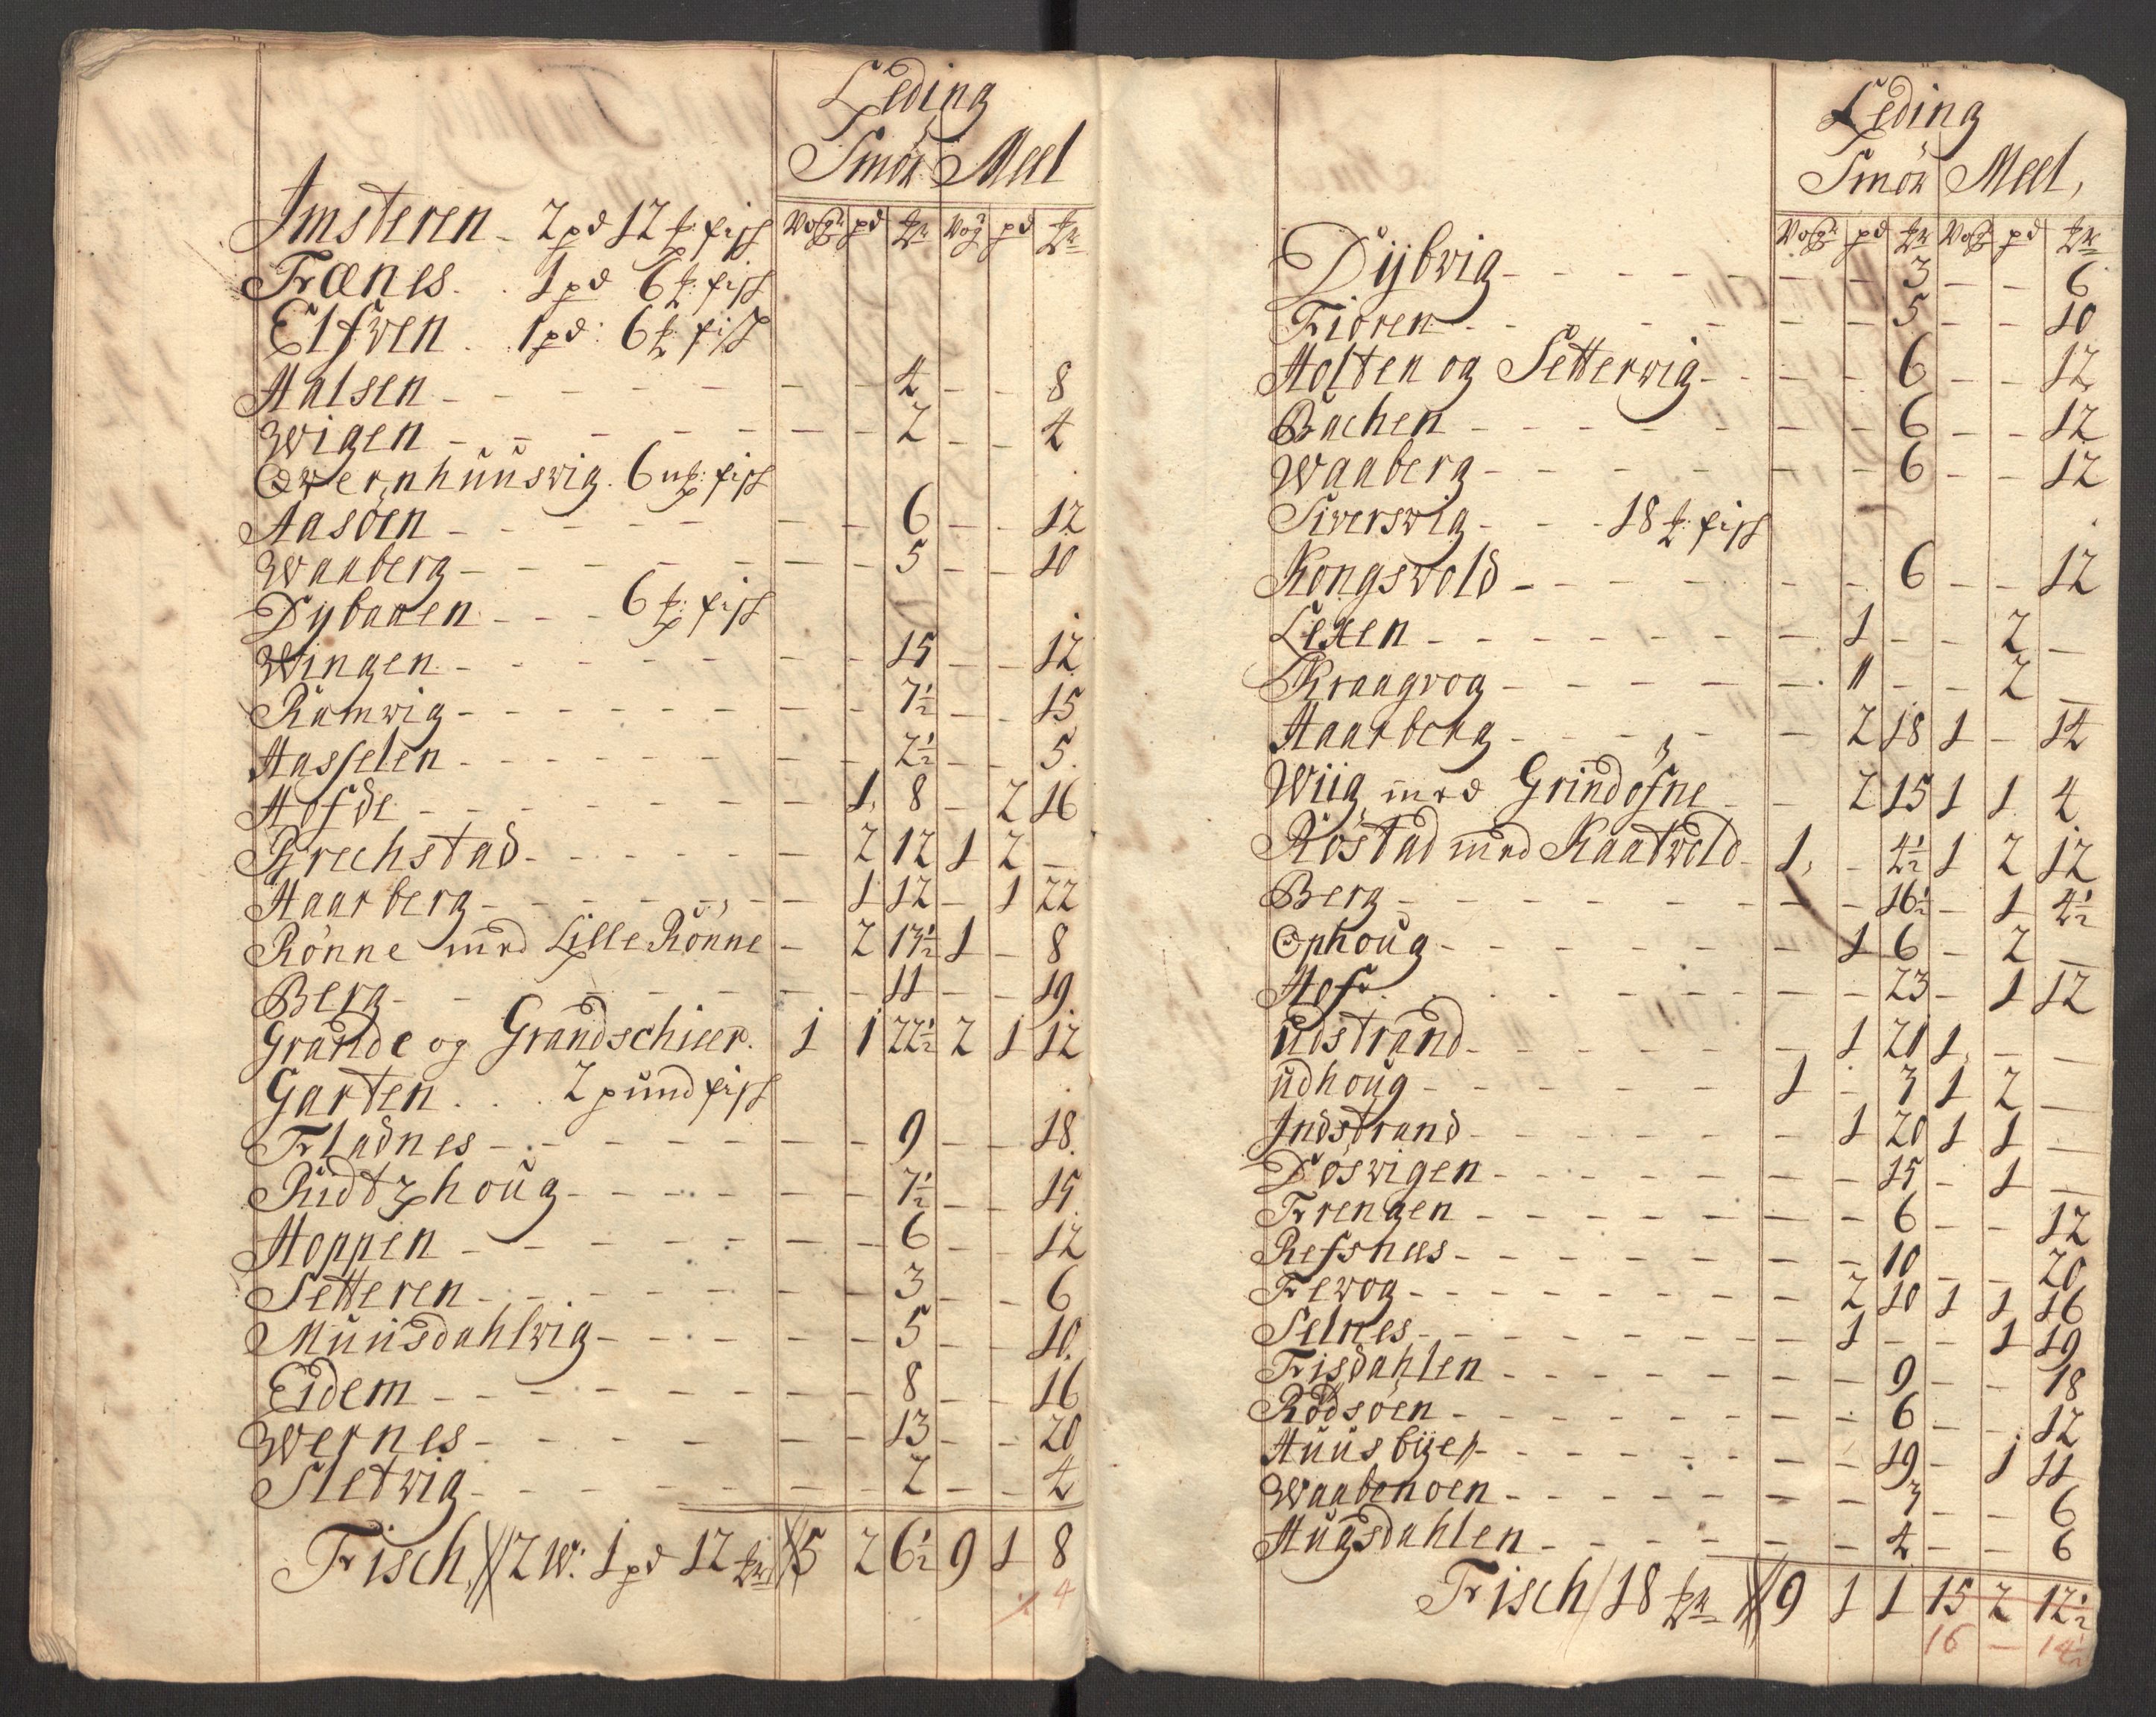 Leding
Smör Meel
Imsteren - 2 pd 12 ℔: fisch Vog pd ℔ Vog pd ℔
Frænes . . 1 pd 6 ℔: fisch
Elfven . . 1 pd: 6 ℔: fisch
Halsen - - - - - - 4 - - 8
Wigen - - - - - - 2 - - 4
Qvernhuusvig. 6 ℔: fisch
Aasöen - - - - - 6 - - 12
Waaberg - - - - - 5 - - 10
Dybaaen - - - 6 ℔: fisch
Wingen - - - - - 15 - - 12
Ramvig - - - - - 7½ - - 15
Hasselen - - - - - 2½ - - 5
Hofde - - - - - 1 8 - 2 16
Brechstad - - - - - 2 12 1 2 -
Haarberg - - - - - 1 12 - 1 22
Rönne med Lille Rönne - 2 13½ 1 - 8
Berg - - - - - 11 - - 19
Grande og Grandschieer. 1 1 22½ 2 1 12
Garten . . . 2 pund fisch
Fladnes - - - - - 9 - - 18
Ridtzhoug - - - - - 7½ - - 15
Hoppen - - - - - 6 - - 12
Setteren - - - - - 3 - - 6
Muusdahlvig - - - - 5 - - 10
Eidem - - - - - 8 - - 16
Wernes - - - - - 13 - - 20
Sletvig - - - - - 2 - - 4
Fisch, 2 W: 1 pd 12 ℔ 5 2 6½ 9 1 8
4
Leding
Smör Meel,
Vog pd ℔ Vog pd ℔
Dybvig - - - - - 3 - - 6
Fioren - - - - - 5 - - 10
Holten og Setterwig - - - 6 - - 12
Bachen - - - - - 6 - - 12
Waaberg - - - - - 6 - - 12
Siverswig - - - 18 ℔: fisch
Kongsvold - - - - - 6 - - 12
Lexen - - - - - 1 - - 2 -
Kraagvog - - - - - 1 - - 2 -
Haarberg - - - - - 2 18 1 - 14
Wiig med Grindösne - 2 15 1 1 4
Röstad med Kaatvold - 1 - 4½ 1 2 12
Berg - - - - - 16½ - 1 4½
Ophoug - - - - - 1 6 - 2 -
Hof - - - - - 23 - 1 12
Udstrand - - - - - 1 21 1 - -
Udhoug - - - - - 1 - 3 1 2 -
Indstrand - - - - - 1 20 1 1 -
Dösvigen - - - - - 15 - 1 -
Frengen - - - - - 6 - - 12
Refsnees - - - - - 10 - - 20
Fevog - - - - - 2 10 1 1 16
Selnes - - - - - 1 - - 1 19
Frisdahlen - - - - - 9 - - 18
Rödsöen - - - - - 6 - - 12
Huusbye - - - - - 19 - 1 11
Waabenoen - - - - - 3 - - 6
Haugsdahlen - - - - - 4 - - 6
Fisch / 18 ℔ 9 1 1 15 2 12½
16 - 14½